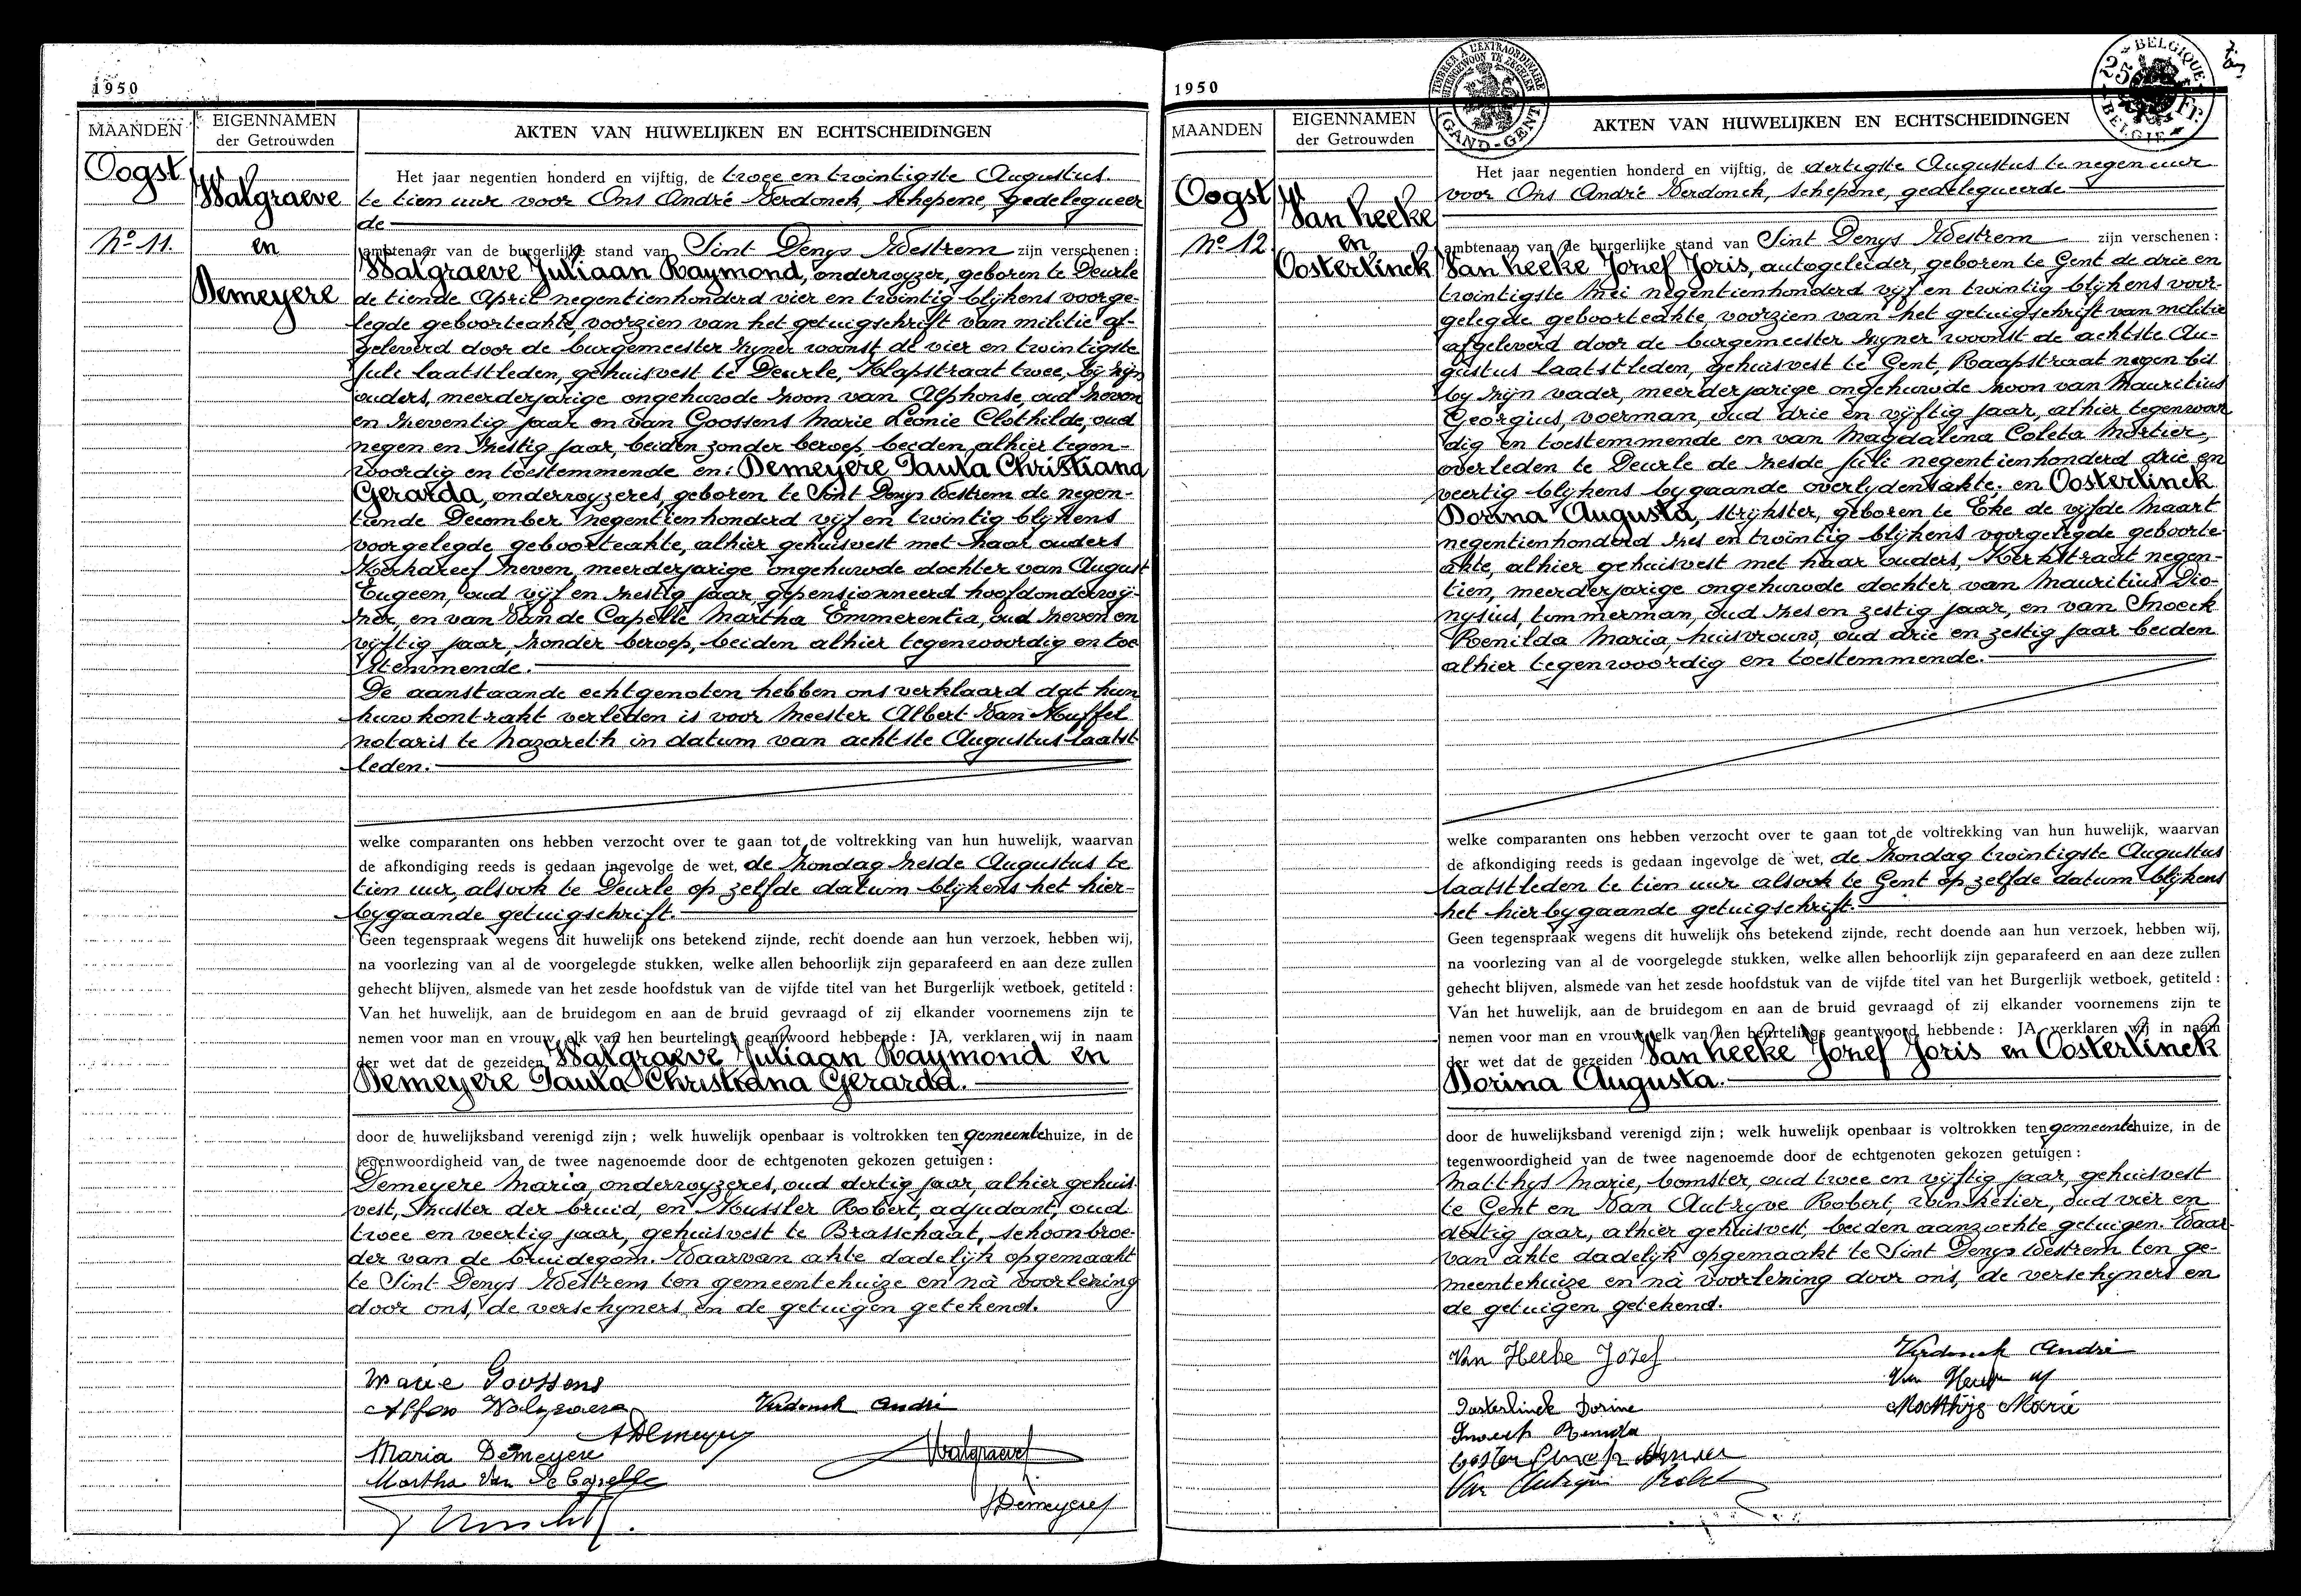 1950
MAANDEN
EIGENNAMEN
der Getrouwden
AKTEN VAN HUWELIJKEN EN ECHTSCHEIDINGEN
Oogst
Nº 11.
Walgraeve
en
Demeyere
Het jaar negentien honderd en vijftig, de twee en twintigste Augustus
te tien uur voor Ons André Verdonck, schepene, gedelegueer
de
ambtenaar van de burgerlijke stand van Sint Denys Westrem zijn verschenen:
Walgraeve Juliaan Raymond, onderwyzer, geboren te Deurle
de tiende April negentienhonderd vier en twintig blijkens voorge-
legde geboorteakte, voorzien van het getuigschrift van militie af-
geleverd door de burgemeester zyner woonst de vier en twintigste
Juli laatstleden, gehuisvest te Deurle, Klapstraat twee, bij zijn
ouders, meerderjarige ongehuwde zoon van Alphonse, oud zeven
en zeventig jaar en van Goossens Marie Leonie Clothilde, oud
negen en zestig jaar, beiden zonder beroep, beiden alhier tegen-
woordig en toestemmende en: Demeyere Paula Christiana
Gerarda, onderwyzeres, geboren te Sint Denys Westrem de negen-
tiende December negentienhonderd vijf en twintig blijkens
voorgelegde geboorteakte, alhier gehuisvest met haar ouders
Kerkdreef zeven, meerderjarige ongehuwde dochter van August
Eugeen, oud vijf en zestig jaar, gepensionneerd hoofdonderwij-
zer, en van Van de Capelle Martha Emmerentia, oud zeven en
vijftig jaar, zonder beroep, beiden alhier tegenwoordig en toe
stemmende.
De aanstaande echtgenoten hebben ons verklaard dat hun
huwkontrakt verleden is voor Meester Albert Van Muffel
notaris te Nazareth in datum van achtste Augustus laatst
leden.
welke comparanten ons hebben verzocht over te gaan tot de voltrekking van hun huwelijk, waarvan
de afkondiging reeds is gedaan ingevolge de wet, de zondag zesde Augustus te
tien uur, alsook te Deurle op zelfde datum blijkens het hier-
bygaande getuigschrift.
Geen tegenspraak wegens dit huwelijk ons betekend zijnde, recht doende aan hun verzoek, hebben wij,
na voorlezing van al de voorgelegde stukken, welke allen behoorlijk zijn geparafeerd en aan deze zullen
gehecht blijven, alsmede van het zesde hoofdstuk van de vijfde titel van het Burgerlijk wetboek, getiteld:
Van het huwelijk, aan de bruidegom en aan de bruid gevraagd of zij elkander voornemens zijn te
nemen voor man en vrouw, elk van hen beurtelings geantwoord hebbende: JA, verklaren wij in naam
der wet dat de gezeiden Walgraeve Juliaan Raymond en
Demeyere Paula Christiana Gerarda.
door de huwelijksband verenigd zijn; welk huwelijk openbaar is voltrokken ten gemeentehuize, in de
tegenwoordigheid van de twee nagenoemde door de echtgenoten gekozen getuigen:
Demeyere Maria, onderwyzeres, oud dertig jaar, alhier gehuis
vest, zuster der bruid, en Mussler Robert, adjudant, oud
twee en veertig jaar, gehuisvest te Brasschaat, schoonbroe-
der van de bruidegom. Waarvan akte dadelijk opgemaakt
te Sint Denys Westrem ten gemeentehuize en nà voorlezing
door ons, de verschyners en de getuigen getekend.
Marie Goossens
Alfons Walgraeve
Verdonck André
ADemeyere
Maria Demeyere
Walgraeve J.
Martha Van De Capelle
Demeyere
1950
TIMBRER A L'EXTRAORDINAIRE
BUITENGEWOON TE ZEGELEN
GAND-GENT
BELGIQUE
25 Fr.
BELGIE
MAANDEN
EIGENNAMEN
der Getrouwden
AKTEN VAN HUWELIJKEN EN ECHTSCHEIDINGEN
Oogst
Nº 12.
Van Heeke
en
Oosterlinck
Het jaar negentien honderd en vijftig, de dertigste Augustus te negen uur
voor Ons André Verdonck, schepene, gedelegueerde
ambtenaar van de burgerlijke stand van Sint Denys Westrem zijn verschenen:
Van Heeke Jozef Joris, autogeleider, geboren te Gent de drie en
twintigste Mei negentienhonderd vijf en twintig blijkens voor-
gelegde geboorteakte voorzien van het getuigschrift van militie
afgeleverd door de burgemeester zyner woonst de achtste Au-
gustus laatstleden, gehuisvest te Gent, Raapstraat negen bis
by zijn vader, meerderjarige ongehuwde zoon van Mauritius
Georgius, voerman, oud drie en vijftig jaar, alhier tegenwoor
dig en toestemmende en van Magdalena Coleta Mortier,
overleden te Deurle de zesde Juli negentienhonderd drie en
veertig blijkens bygaande overlydensakte; en Oosterlinck
Dorina Augusta, strijkster, geboren te Eke de vijfde Maart
negentienhonderd zes en twintig blijkens voorgelegde geboorte-
akte, alhier gehuisvest met haar ouders, Kerkstraat negen-
tien, meerderjarige ongehuwde dochter van Mauritius Dio-
nysius, timmerman, oud zes en zestig jaar, en van Snoeck
Romilda Maria, huisvrouw, oud drie en zestig jaar beiden
alhier tegenwoordig en toestemmende.
welke comparanten ons hebben verzocht over te gaan tot de voltrekking van hun huwelijk, waarvan
de afkondiging reeds is gedaan ingevolge de wet, de zondag twintigste Augustus
laatstleden te tien uur alsook te Gent op zelfde datum blijkens
het hierbygaande getuigschrift.
Geen tegenspraak wegens dit huwelijk ons betekend zijnde, recht doende aan hun verzoek, hebben wij,
na voorlezing van al de voorgelegde stukken, welke allen behoorlijk zijn geparafeerd en aan deze zullen
gehecht blijven, alsmede van het zesde hoofdstuk van de vijfde titel van het Burgerlijk wetboek, getiteld:
Van het huwelijk, aan de bruidegom en aan de bruid gevraagd of zij elkander voornemens zijn te
nemen voor man en vrouw, elk van hen beurtelings geantwoord hebbende: JA, verklaren wij in naam
der wet dat de gezeiden Van Heeke Jozef Joris en Oosterlinck
Dorina Augusta.
door de huwelijksband verenigd zijn; welk huwelijk openbaar is voltrokken ten gemeentehuize, in de
tegenwoordigheid van de twee nagenoemde door de echtgenoten gekozen getuigen:
Matthys Marie, bomster, oud twee en vijftig jaar, gehuisvest
te Gent en Van Autryve Robert, winkelier, oud vier en
dertig jaar, alhier gehuisvest, beiden aanzochte getuigen. Waar-
van akte dadelijk opgemaakt te Sint Denys Westrem ten ge-
meentehuize en nà voorlezing door ons, de verschyners en
de getuigen getekend.
Van Heeke Jozef
Verdonck André
Oosterlinck Dorine
Matthijs Marie
Snoeck
Van Autryve Robert